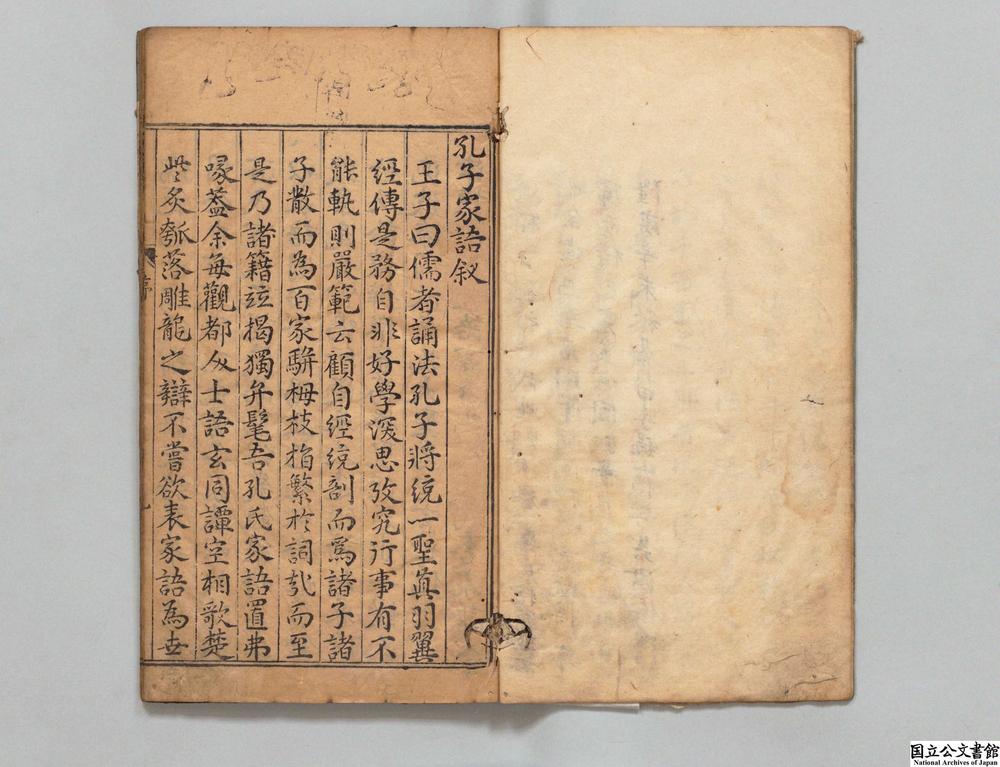 孔子家語叙
王子曰儒者誦法孔子將統一聖真羽翼
經傳是務自非好學深思攷究行事有不
能執則嚴範云顧自經統剖而爲諸子諸
子散而為百家駢栂枝指繁於詞而至
是乃諸籍竝揭獨弁髦吾孔氏家語置弗
喙葢余每觀都人士語玄同譚空相歌楚
些炙瓠落雕龍之辯不嘗欲表家語為世
序
国立公文書館
National Archives of Japan